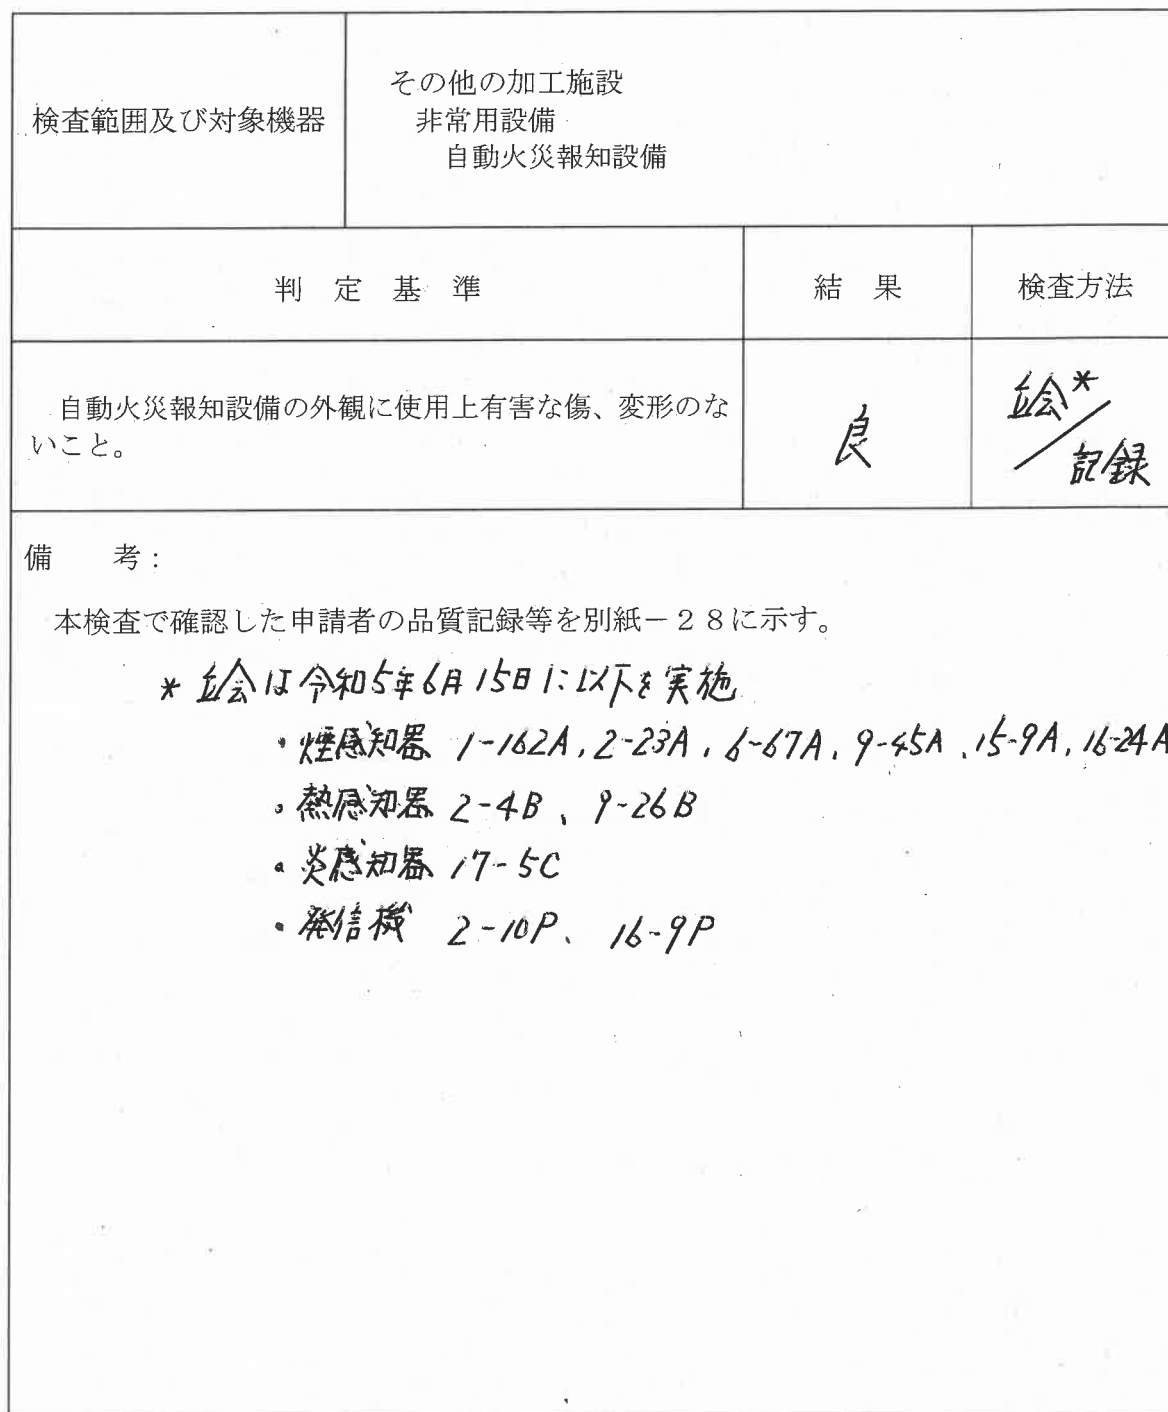 検査範囲及び対象機器
その他の加工施設
非常用設備
自動火災報知設備
判 定 基 準
結 果
検査方法
自動火災報知設備の外観に使用上有害な傷、変形のな
いこと。
良
立会*
/記録
備 考:
本検査で確認した申請者の品質記録等を別紙-28に示す。
* 立会は令和5年6月15日に以下を実施
・煙感知器 1-162A, 2-23A, 6-67A, 9-45A, 15-9A, 16-24A
・熱感知器 2-4B、9-26B
・炎感知器 17-5C
・発信機 2-10P、16-9P